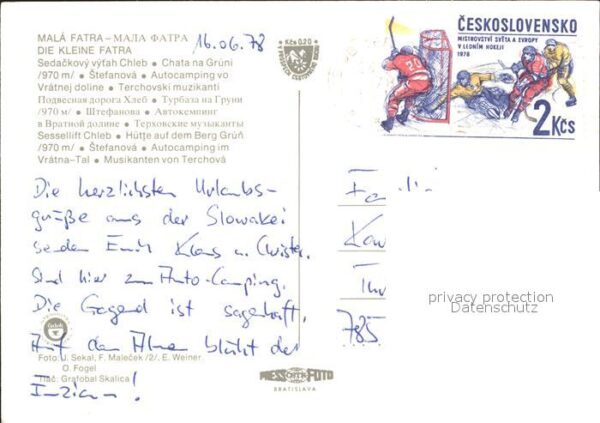 MALÁ FATRA – МАЛА ФАТРА
DIE KLEINE FATRA
16.06.78
Sedačkový výťah Chleb • Chata na Grúni
/970 m/ • Štefanová • Autocamping vo
Vrátnej doline • Terchovski muzikanti
Подвесная дорога Хлеб • Турбаза на Груни
/970 м/ • Штефанова • Автокемпинг
в Вратной долине • Терховские музыканты
Sessellift Chleb • Hütte auf dem Berg Grúň
/970 m/ • Štefanová • Autocamping im
Vrátna-Tal • Musikanten von Terchová
Kčs 0,20
ČESKOSLOVENSKO
MISTROVSTVÍ SVĚTA A EVROPY
V LEDNÍM HOKEJI
1978
20
2 Kčs
Die herzlichsten Urlaubs-
grüße aus der Slowakei
senden Euch Klaus u. Christa.
Sind hier zum Auto-Camping.
Die Gegend ist sagenhaft.
Auf den Almen blüht der
Enzian!
785
privacy protection
Datenschutz
Foto: J. Sekal, F. Maleček /2/, E. Weiner
O. Fogel
Tlač: Grafobal Skalica
PRESSFOTO
BRATISLAVA